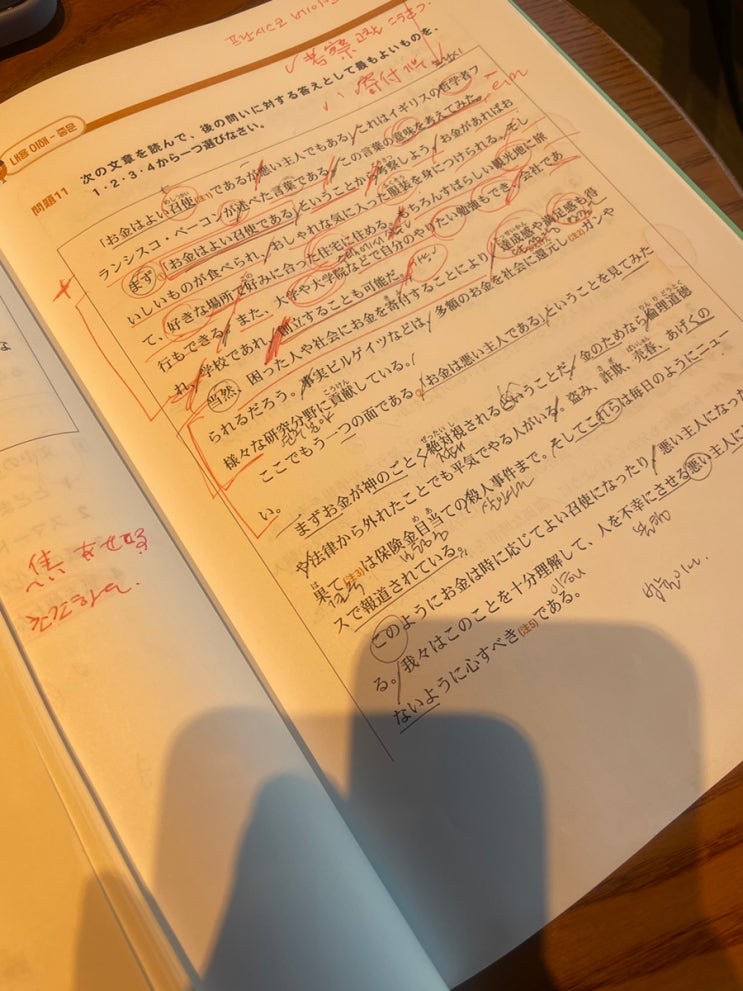 考察
寄付
내용 이해 - 중문
問題11 次の文章を読んで、後の問いに対する答えとして最もよいものを、
1・2・3・4から一つ選びなさい。
「お金はよい召使(注1)であるが悪い主人でもある」これはイギリスの哲学者フ
ランシスコ・ベーコンが述べた言葉である。この言葉の意味を考えてみた。
まず「お金はよい召使である」ということから考察しよう。お金があればお
いしいものが食べられ、おしゃれな気に入った服装を身につけられる。そし
て、好きな場所で好みに合った住宅に住める。もちろんすばらしい観光地に旅
行もできる。また、大学や大学院などで自分のやりたい勉強もでき、会社であ
れ、学校であれ、創立することも可能だ。
当然、困った人や社会にお金を寄付することにより、達成感や満足感も得
られるだろう。事実ビルゲイツなどは、多額のお金を社会に還元し(注2)ガンや
様々な研究分野に貢献している。
ここでもう一つの面である。「お金は悪い主人である」ということを見てみた
い。
まずお金が神のごとく絶対視されるということだ。金のためなら倫理道徳
や法律から外れたことでも平気でやる人がいる。盗み、詐欺、売春、あげくの
果て(注3)は保険金目当ての殺人事件まで。そしてこれらは毎日のようにニュー
スで報道されている。
このようにお金は時に応じてよい召使になったり、悪い主人になった
る。我々はこのことを十分理解して、人を不幸にさせる悪い主人に
ないように心すべき(注5)である。